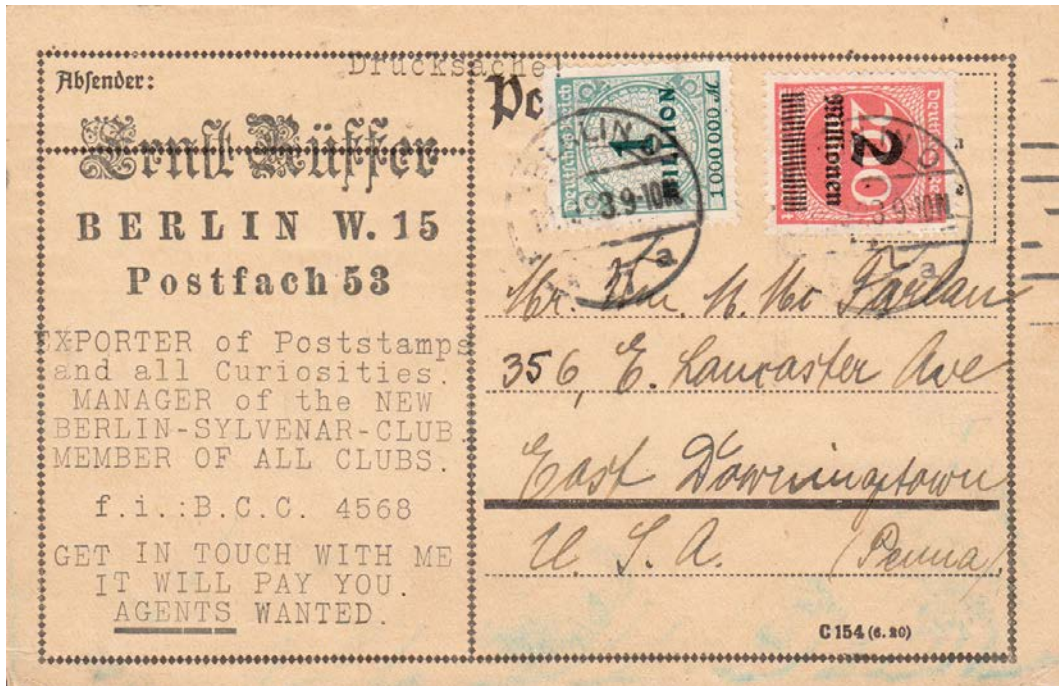 Drucksache
Absender:
Ernst Küffer
BERLIN W. 15
Postfach 53
EXPORTER of Poststamps
and all Curiosities.
MANAGER of the NEW
BERLIN-SYLVENAR-CLUB
MEMBER OF ALL CLUBS.
f.i.:B.C.C. 4568
GET IN TOUCH WITH ME
IT WILL PAY YOU.
AGENTS WANTED.
Po
Deutsches Reich
1
MILLION
2
Millionen
200
BERLIN
9-10
a
9-10
a
Mr. Wm. M. Mc Farlan
356, E. Lancaster Ave
East Downingtown
U. S. A. (Penna).
C 154 (6. 20)